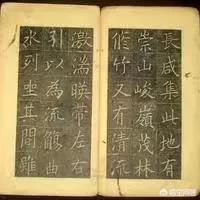 長咸集此地有
崇山峻嶺茂林
修竹又有清流
激湍暎帶左右
引以為流觴曲
水列坐其間雖